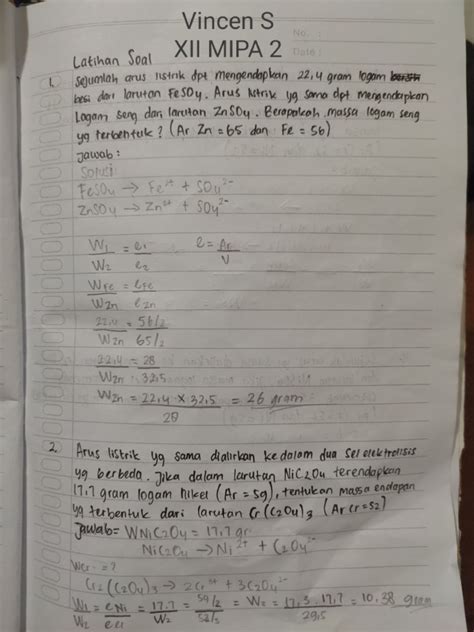 Vincen S
XII MIPA 2
No. :
Date :
Latihan Soal
1. Sejumlah arus listrik dpt mengendapkan 22,4 gram logam
besi dari larutan FeSO4. Arus listrik yg sama dpt mengendapkan
Logam seng dari larutan ZnSO4. Berapakah massa logam seng
yg terbentuk? (Ar Zn = 65 dan Fe = 56)
Jawab :
Solusi
FeSO4 → Fe2+ + SO4 2-
ZnSO4 → Zn2+ + SO4 2-
W1 / W2 = e1 / e2    e = Ar / V
WFe / WZn = eFe / eZn
22,4 / WZn = 56/2 / 65/2
22,4 / WZn = 28 / 32,5
WZn = 22,4 x 32,5 / 28 = 26 gram
2. Arus listrik yg sama dialirkan kedalam dua sel elektrolisis
yg berbeda. Jika dalam larutan NiC2O4 terendapkan
17.7 gram logam nikel (Ar = 59), tentukan massa endapan
yg terbentuk dari larutan Cr(C2O4)3 (Ar cr=52)
Jawab = WNiC2O4 = 17.7 gr
NiC2O4 → Ni2+ + C2O4 2-
WCr = ?
Cr2(C2O4)3 → 2Cr3+ + 3C2O4 2-
W1 / W2 = eNi / eCr = 17.7 / W2 = 59/2 / 52/3 = W2 = 17,3 . 17,7 / 29,5 = 10.38 gram